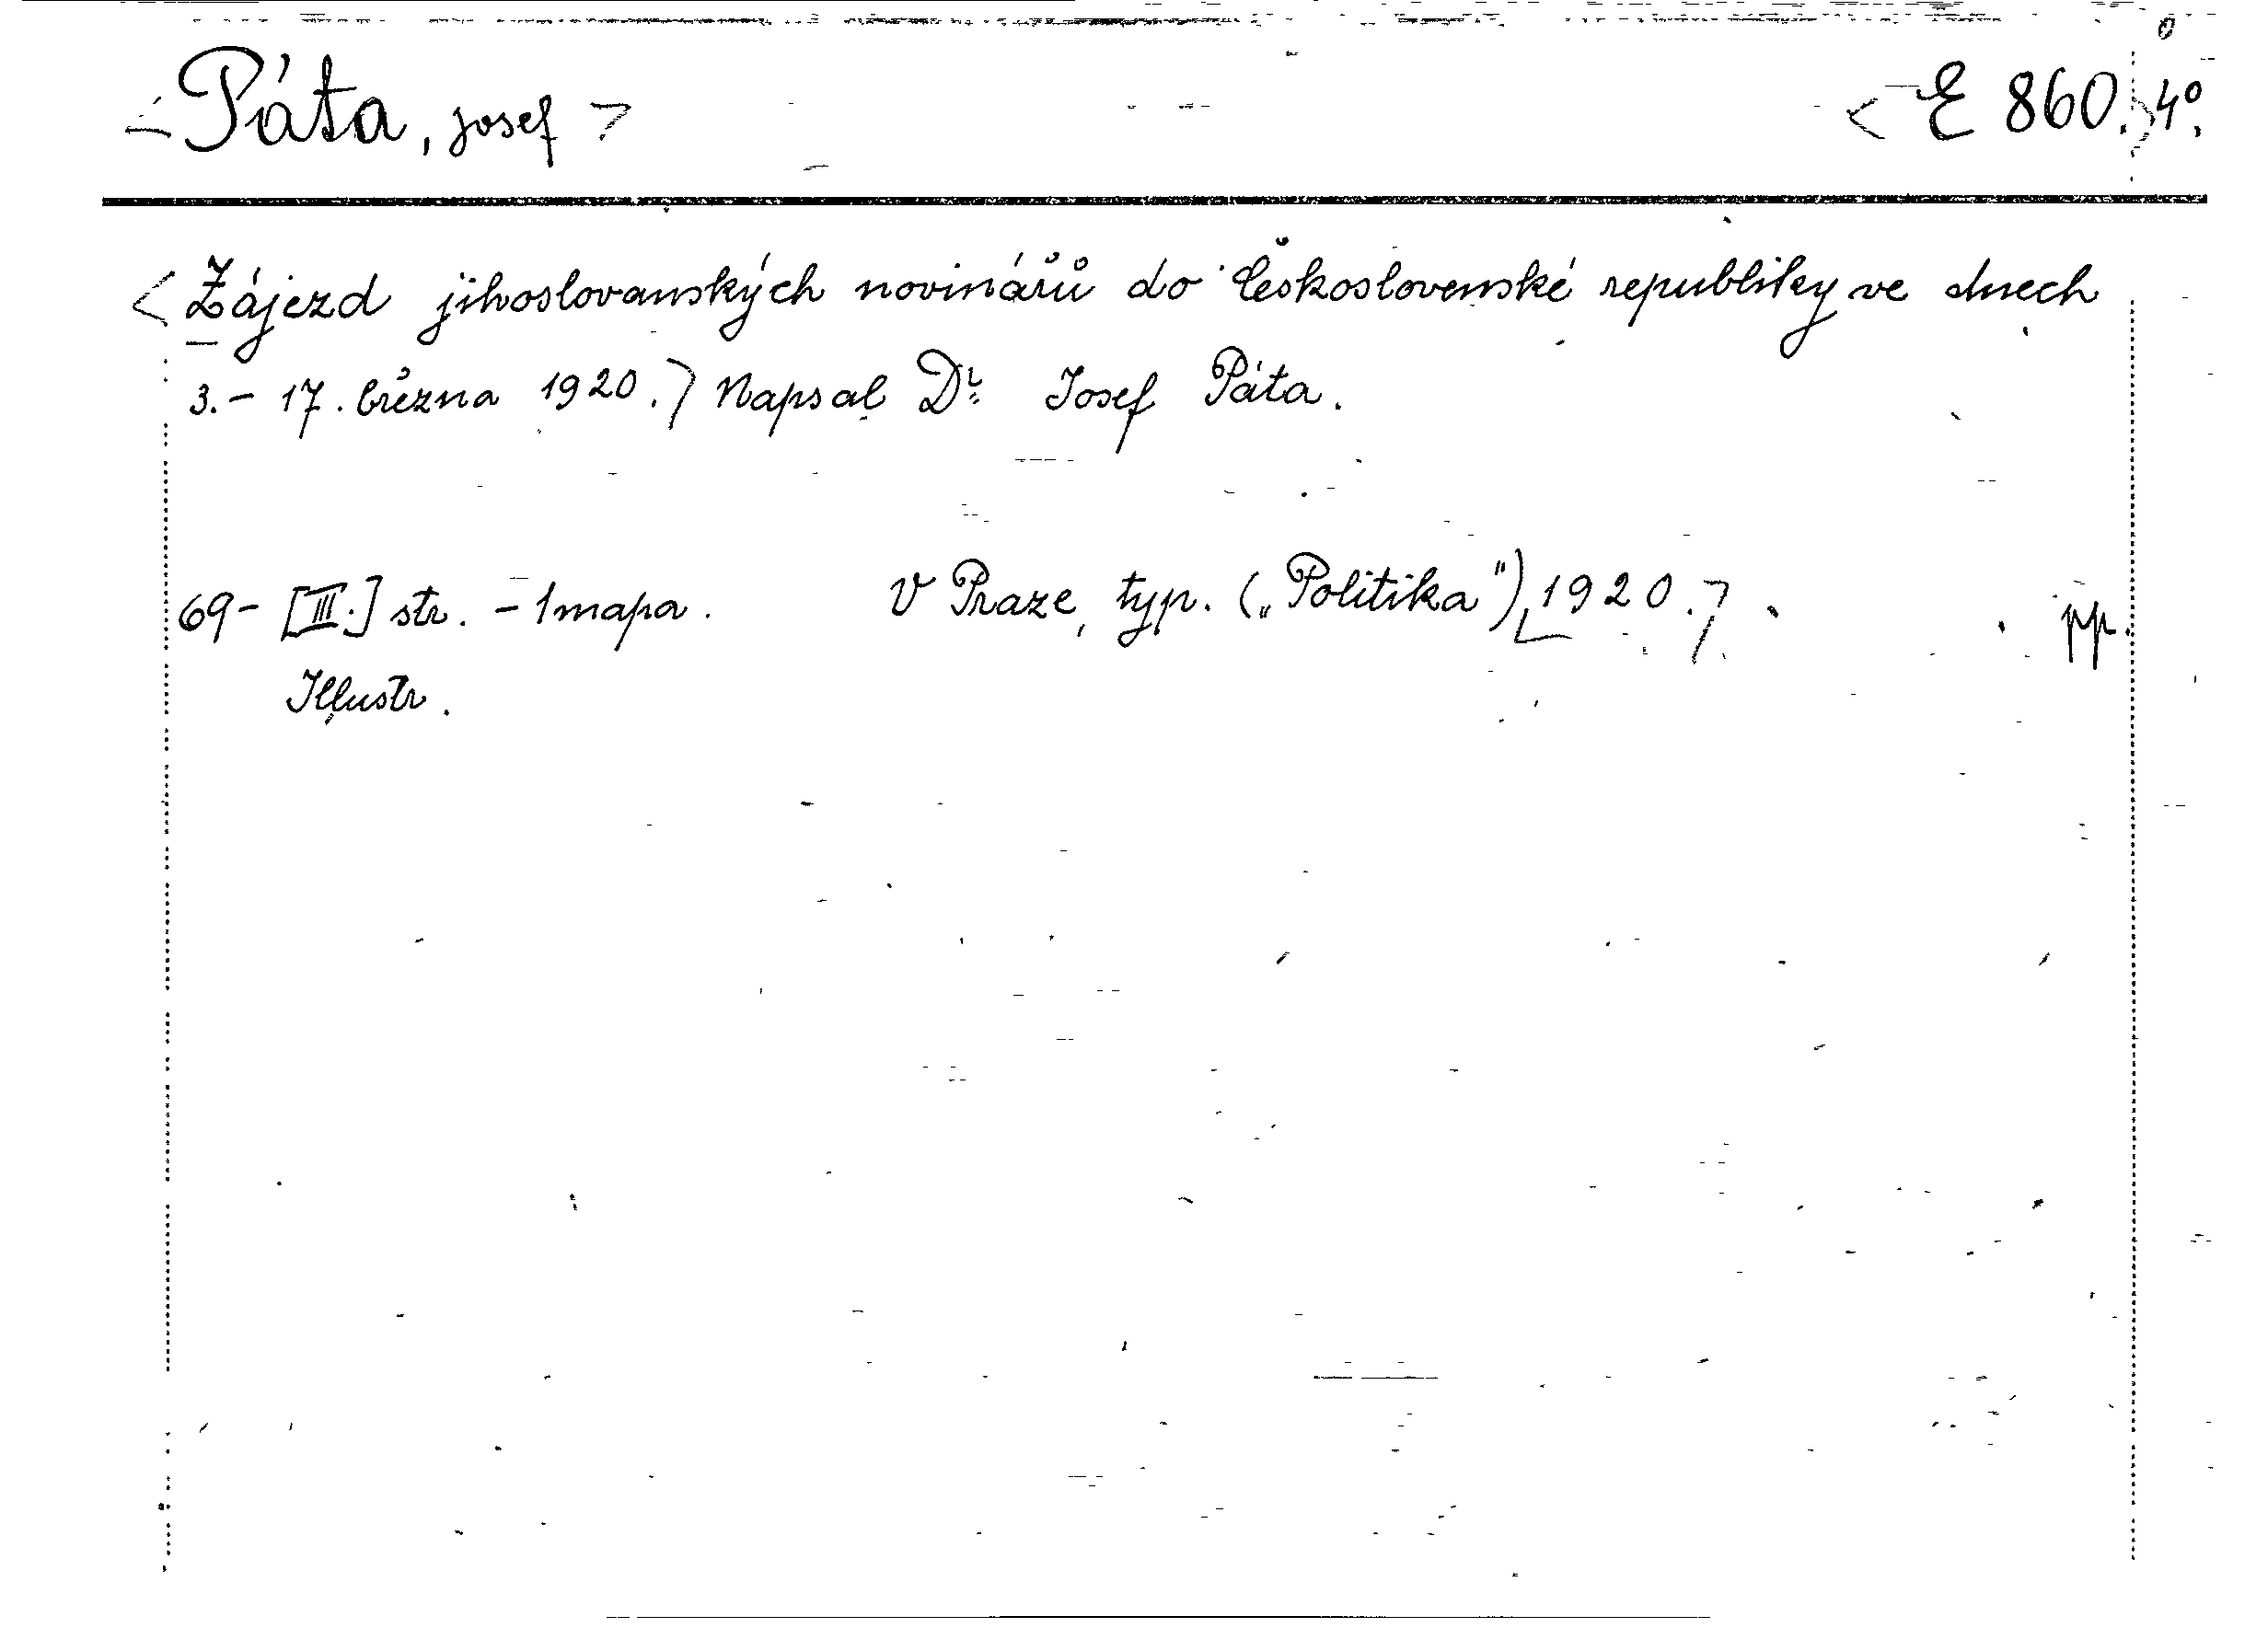 <Páta, Josef> <E 860.>4º.
<Zájezd jihoslovanských novinářů do Československé republiky ve dnech
3.- 17. března 1920.> Napsal Dr. Josef Páta.
69- [III.] str. - 1 mapa. V Praze, typ. („Politika") <1920.> pp.
Illustr.